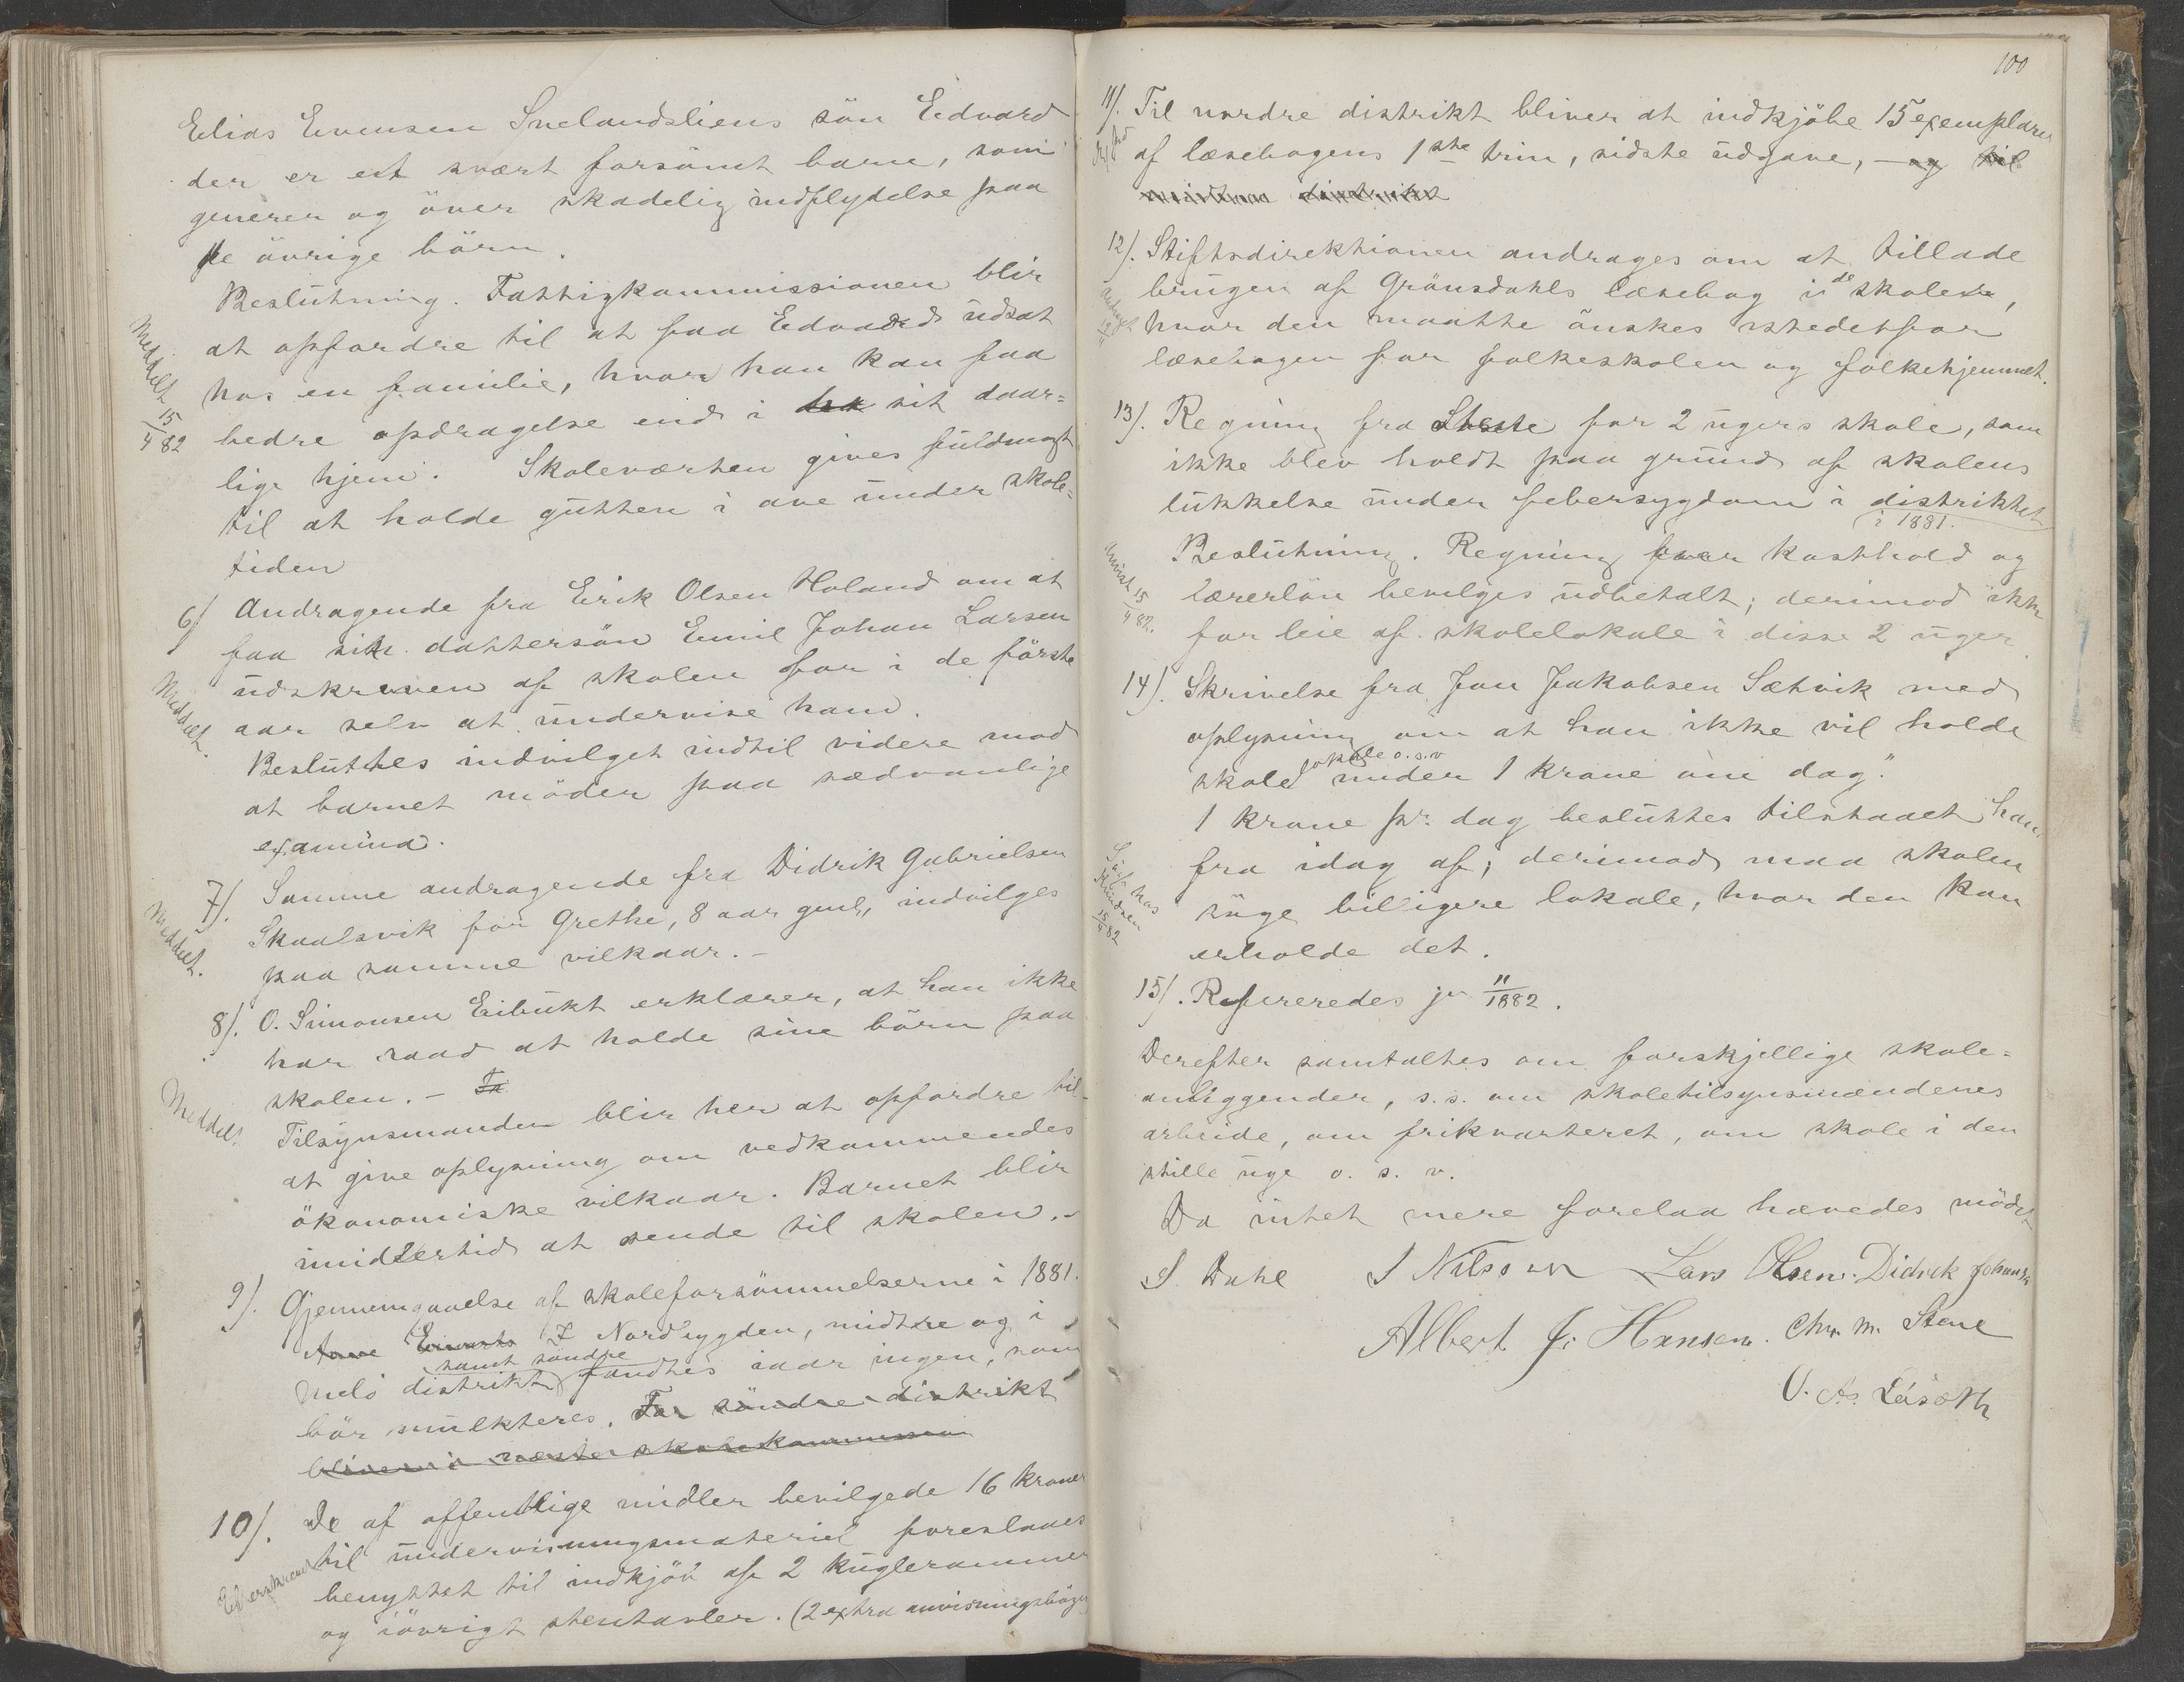 Elias Evensen Snelandsliens sön Edvard
der er et svært forsömt barn, som
generer og över skadelig indflydelse paa
de övrige börn.
Beslutning. Fattigkommissionen blir
at opfordre til at faa Edvard udsat
hos en familie, hvor han kan faa
Meddelt 15/4 82
bedre opdragelse end i sit daar-
lige hjem. Skoleværten gives fuldmagt
til at holde gutten i ave under skole-
tiden
6) Andragende fra Erik Olsen Holand om at
faa sin dattersön Emil Johan Larsen
udskreven af skolen for i de förste
Meddelt.
aar selv at undervise ham.
Besluttes indvilget indtil videre mod
at barnet möder paa sædvanlige
examina.
7). Samme andragende fra Didrik Gabrielsen
Skaalsvik for Grethe, 8 aar gml, indvilges
Meddelt.
paa samme vilkaar. -
8). O. Simonsen Eibukt erklærer, at han ikke
har raad at holde sine börn paa
skolen. - Ta
Meddelt
Tilsynsmanden blir her at opfordre til
at give oplysning om vedkommendes
ökonomiske vilkaar. Barnet blir
imidlertid at sende til skolen. -
9). Gjennemgaaelse af skoleforsömmelserne i 1881.
I Nordbygden, midtre og i
samt söndre
Melö distrikt fandtes iaar ingen, som
bör mulkteres. For söndre distrikt
bliver i næste skolekommission
10). De af offentlige midler bevilgede 16 kroner
til undervisningsmateriel foreslaaes
Efterskrevet
benyttet til indkjöb af 2 kuglerammer
og iövrigt stentavler. (2 extra anvisningsböger
100
11). Til nordre distrikt bliver at indkjöbe 15 exemplarer
af læsebogens 1ste trin, sidste udgave, - og til
midtre distrikt
12). Stiftsdirektionen andrages om at tillade
brugen af Grönsdahls læsebog i de skoler,
hvor den maatte önskes istedetfor
læsebogen for folkeskolen og folkehjemmet.
13). Regning fra Stene for 2 ugers skole, som
ikke blev holdt paa grund af skolens
lukkelse under febersygdom i distriktet
i 1881.
Beslutning. Regning for kosthold og
Anvist 15/4 82.
lærerlön bevilges udbetalt; derimod ikke
for leie af skolelokale i disse 2 uger
14). Skrivelse fra Jon Jakobsen Sætvik med
oplysning om at han ikke vil holde
lokale o.s.v
skole under 1 krone om dag."
1 krone pr. dag besluttes tilstaaet ham
fra idag af; derimod maa skolen
söge billigere lokale, hvor den kan
15/4 82
erholde det.
15). Refereredes jr 11/1882.
Derefter samtaltes om forskjellige skole-
anliggender, s. s. om skoletilsynsmændenes
arbeide, om frikvarteret, om skole i den
stille uge o. s. v.
Da intet mere forelaa hævedes mödet
S. Dahl J Nilssen Lars Olsen. Didrik Johansen
Albert J. Hansen. Chr. M. Stene
O. As. Låsøth